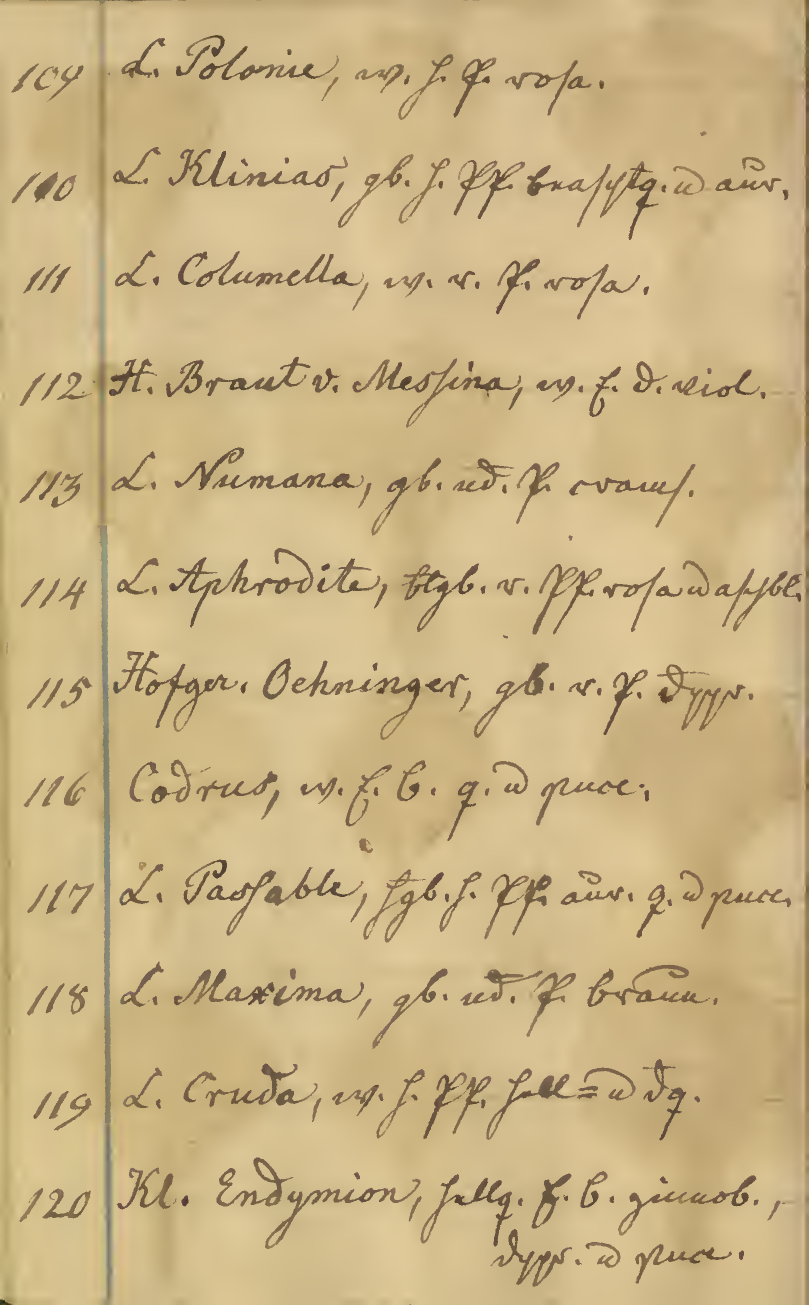 109 L. Polonie, w. h. P. rosa.
110 L. Klinias, gb. h. Pf. u aur.
111 L. Columella, w. r. P. rosa.
112 H. Braut v. Messina, w. f. d. viol.
113 L. Numana, gb. nd. P. cramf.
114 L. Aphrodite, btgb. r. Pf. rosa u aschbl.
115 Hofger. Oehninger, gb. r. P. dppr.
116 Codrus, w. f. b. q. u puce.
117 L. Passable, hgb. h. Pf. aur. q. u puce.
118 L. Maxima, gb. nd. P. braun.
119 L. Cruda, w. h. Pf. hell= u dq.
120 Kl. Endymion, hellq. f. b. zinnob.,
dppr. u puce.